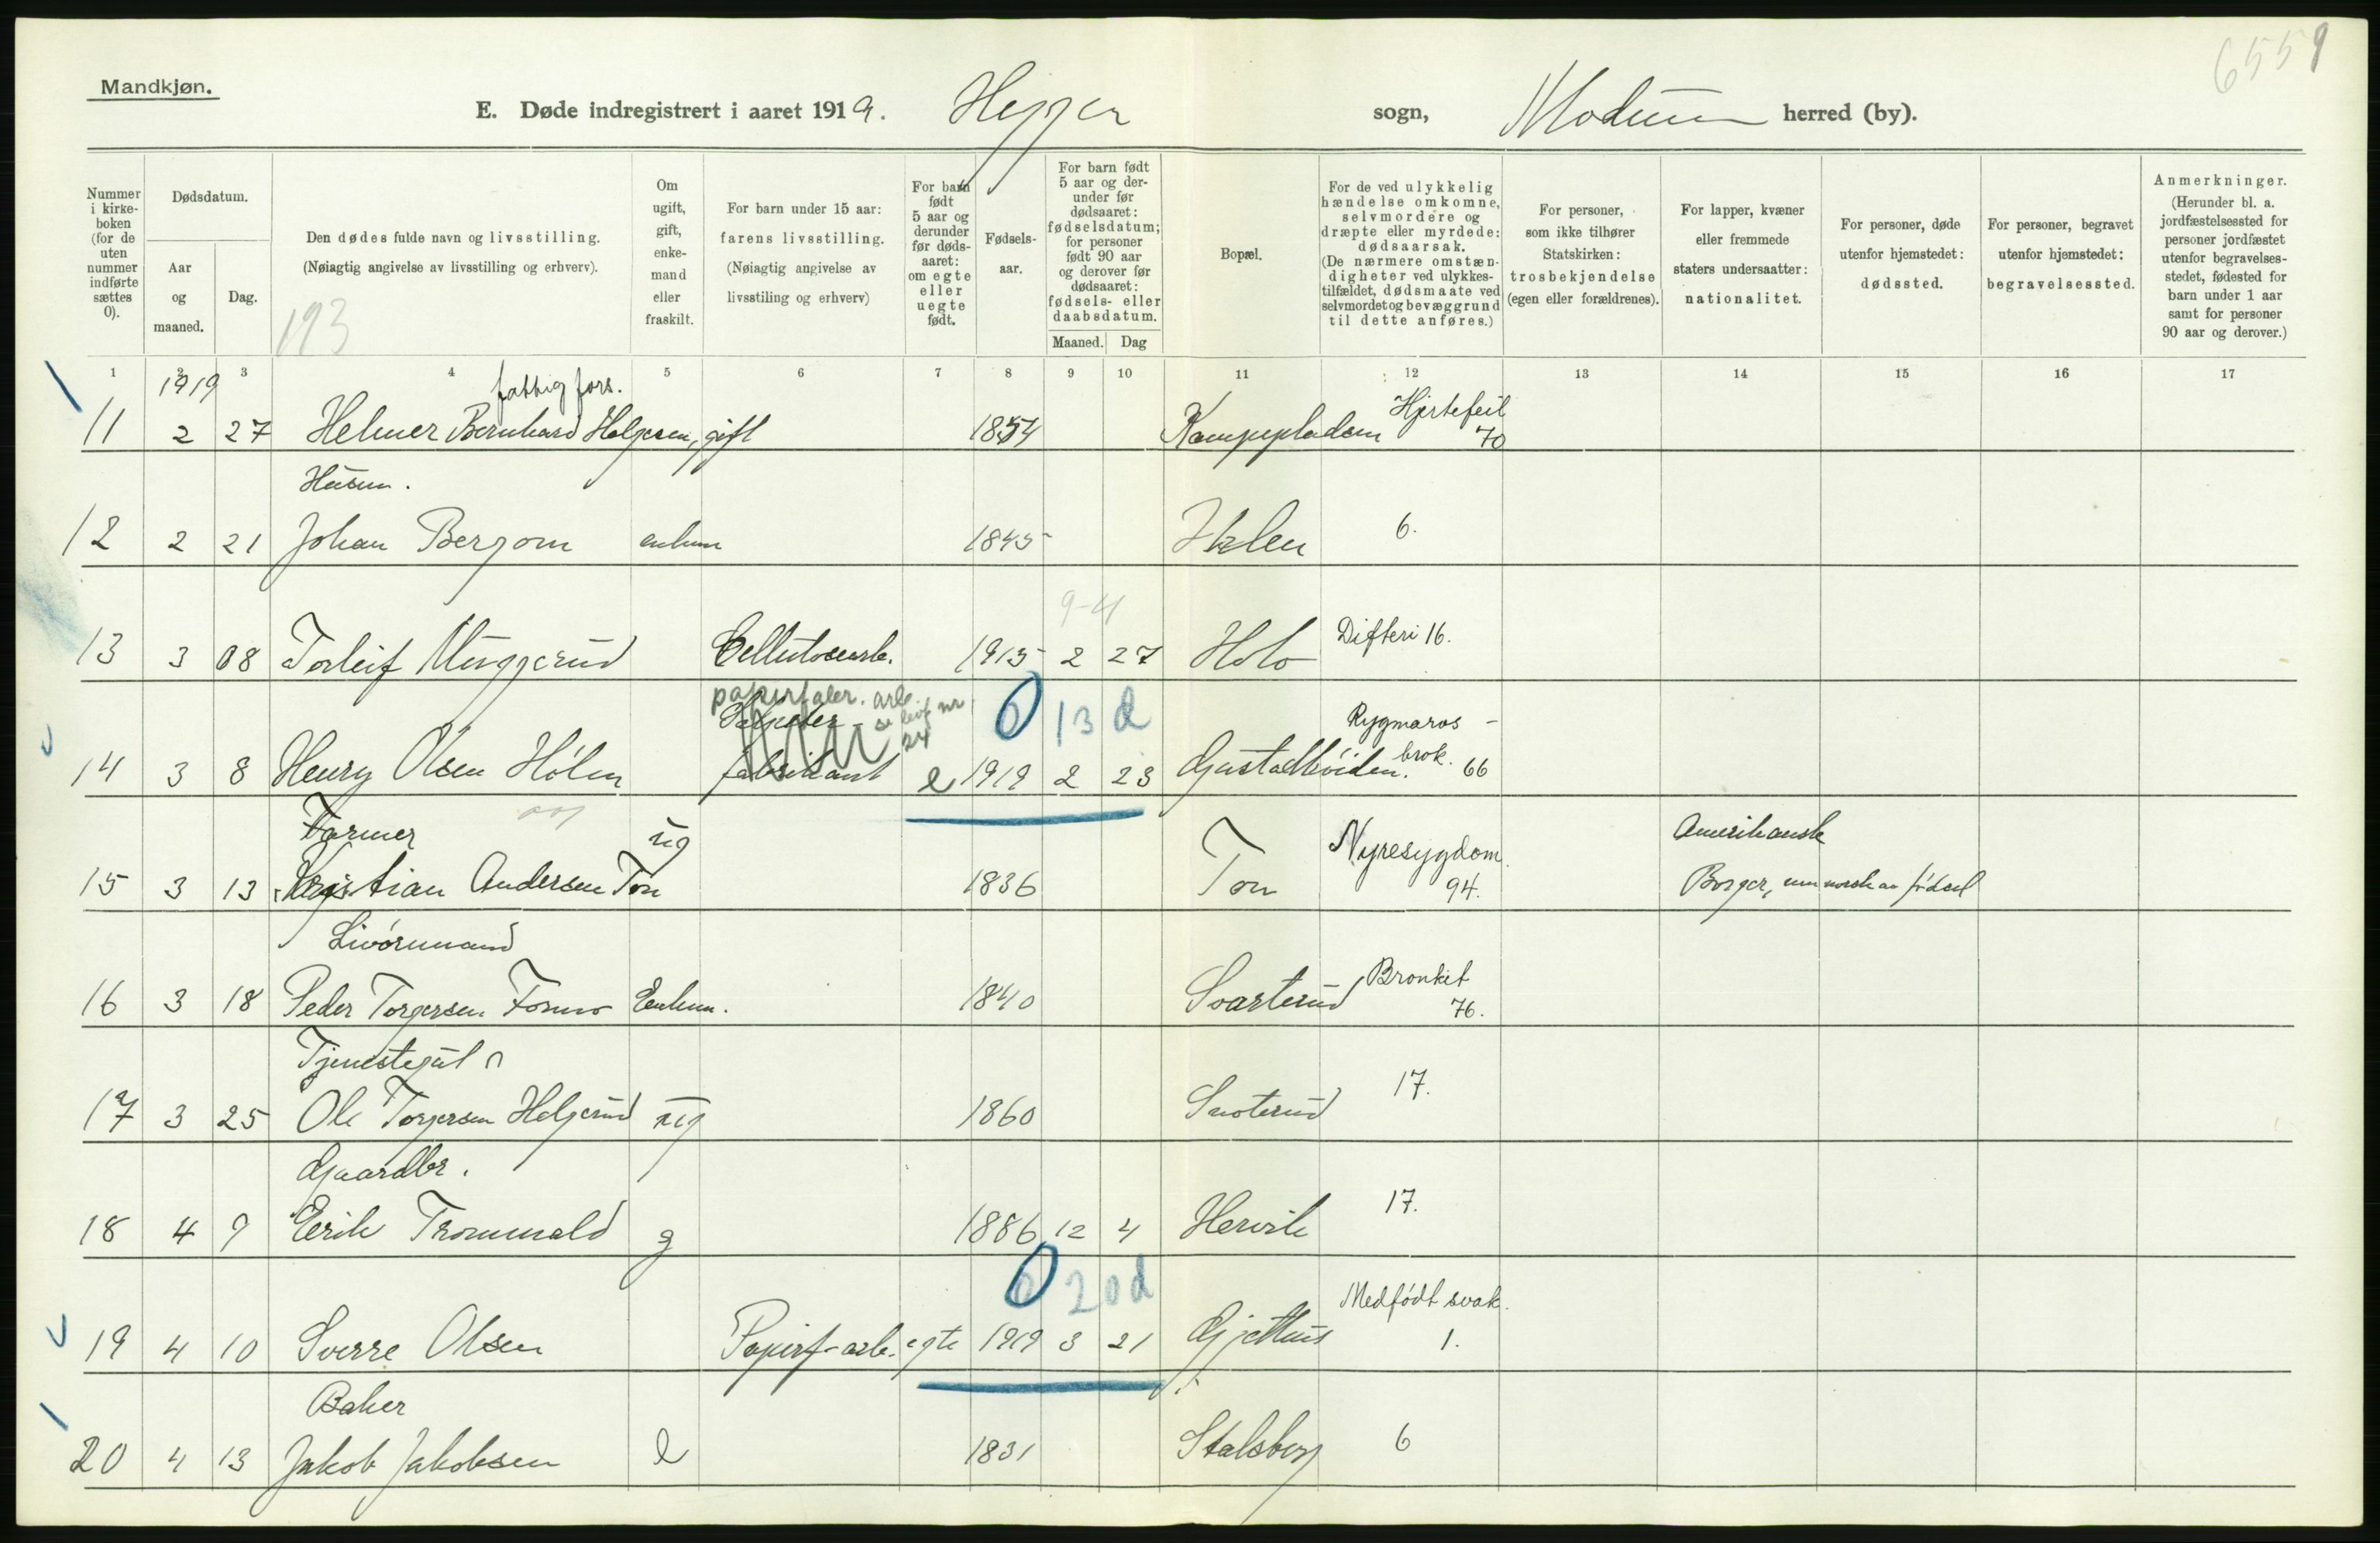 6559
Mandkjøn.
E. Døde indregistrert i aaret 1919. Heggen sogn, Modum herred (by).
Nummer i kirkeboken (for de uten nummer indførte sættes 0).
Dødsdatum.
Aar og maaned.
Dag.
Den dødes fulde navn og livsstilling.
(Nøiagtig angivelse av livsstilling og erhverv).
193
Om ugift, gift, enkemand eller fraskilt.
For barn under 15 aar: farens livsstilling.
(Nøiagtig angivelse av livsstiling og erhverv)
For barn født 5 aar og derunder før dødsaaret: om egte eller uegte født.
Fødselsaar.
For barn født 5 aar og derunder før dødsaaret: fødselsdatum; for personer født 90 aar og derover før dødsaaret: fødsels- eller daabsdatum.
Maaned. Dag
Bopæl.
For de ved ulykkelig hændelse omkomne, selvmordere og dræpte eller myrdede: dødsaarsak.
(De nærmere omstændigheter ved ulykkestilfældet, dødsmaate ved selvmordet og bevæggrund til dette anføres.)
For personer, som ikke tilhører Statskirken: trosbekjendelse (egen eller forældrenes).
For lapper, kvæner eller fremmede staters undersaatter: nationalitet.
For personer, døde utenfor hjemstedet: dødssted.
For personer, begravet utenfor hjemstedet: begravelsessted.
Anmerkninger.
(Herunder bl. a. jordfæstelsessted for personer jordfæstet utenfor begravelsesstedet, fødested for barn under 1 aar samt for personer 90 aar og derover.)
1 2 3 4 5 6 7 8 9 10 11 12 13 14 15 16 17
1919 fattigfors. Hjertefeil
11 2 27 Helmer Bernhard Holgersen, gift 1854 Kampepladsen 70
Husm.
12 2 21 Johan Bergom enkem 1845 Ihlen 6.
9-4
13 3 08 Torleif Muggerud Cellulosearb. 1915 2 27 Holo Difteri 16.
papirfabr. arb. se leif nr 24 0 13 d Rygmarvs-
14 3 8 Henry Olsen Hólen fabrikant e 1919 2 23 Gustadhviden. brok. 66
Farmer ug Nyresygdom. Amerikansk
15 3 13 Kristian Andersen Ton 1836 Ton 94. Borger, men norsk av fódsel
Livóremand Bronkit
16 3 18 Peder Torgersen Formo Enkem. 1840 Svarterud 76.
Tjenestegut
17 3 25 Ole Torgersen Helgerud ug 1860 Snoterud 17.
Gaardbr.
18 4 9 Eerik Trommald g 1886 12 4 Hervik 17.
0 20 d Medfódt svak.
19 4 10 Sverre Olsen Papirf-arb. egte 1919 3 21 Gjethus 1.
Baker
20 4 13 Jakob Jakobsen e 1831 Stalsberg 6